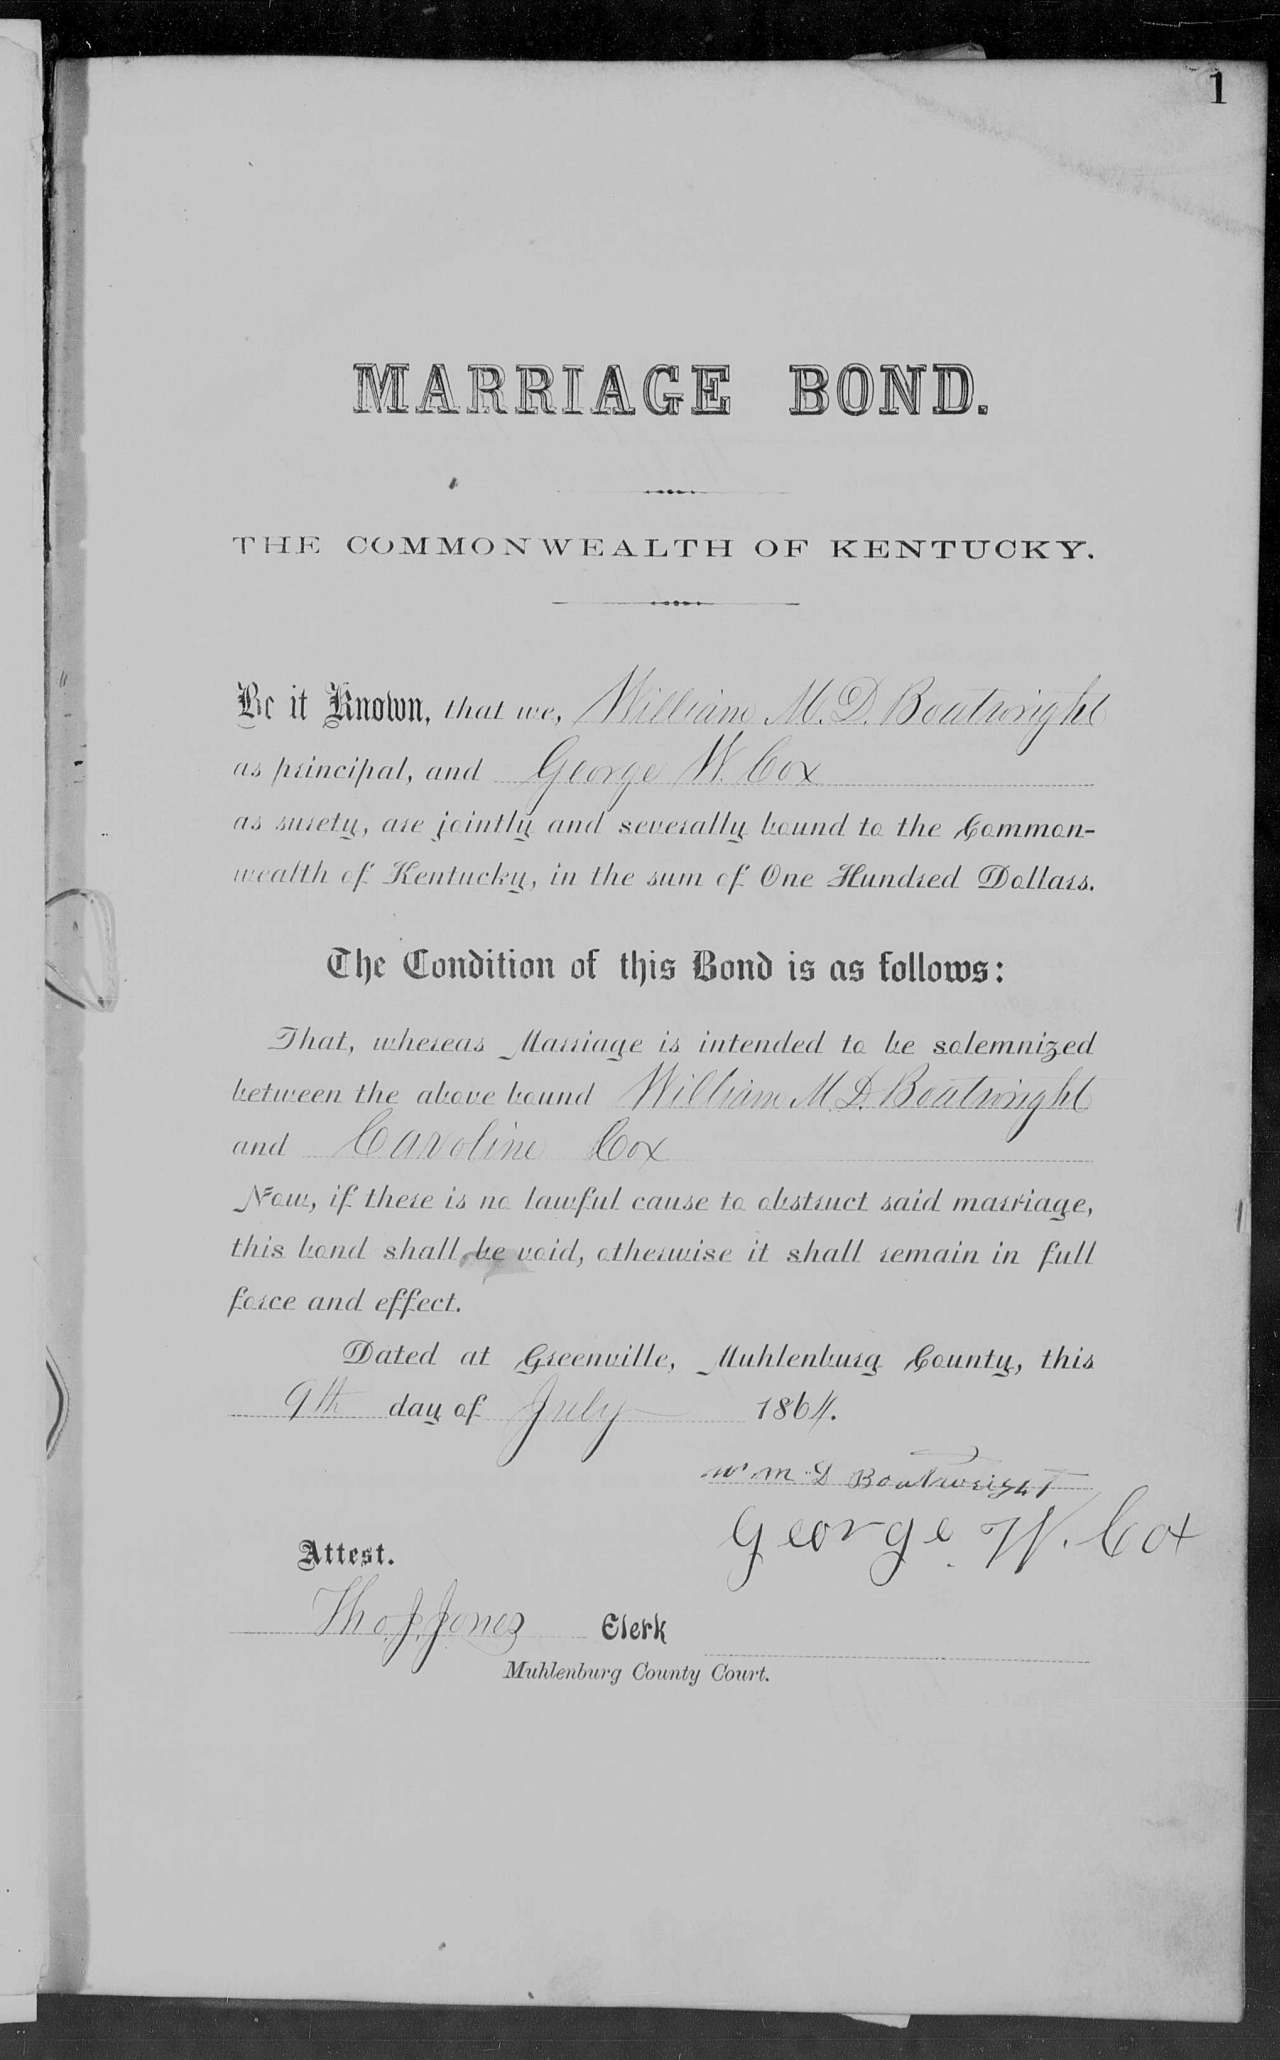 1
MARRIAGE BOND.
THE COMMONWEALTH OF KENTUCKY.
Be it Known, that we, William M. D. Boatwright
as principal, and George W. Cox
as surety, are jointly and severally bound to the Common-
wealth of Kentucky, in the sum of One Hundred Dollars.
The Condition of this Bond is as follows:
That, whereas Marriage is intended to be solemnized
between the above bound William M. D. Boatwright
and Caroline Cox
Now, if there is no lawful cause to obstruct said marriage,
this bond shall be void, otherwise it shall remain in full
force and effect.
Dated at Greenville, Muhlenburg County, this
9th day of July 1864.
Wm D Boatwright
George W. Cox
Attest.
Tho. J. Jones Clerk
Muhlenburg County Court.